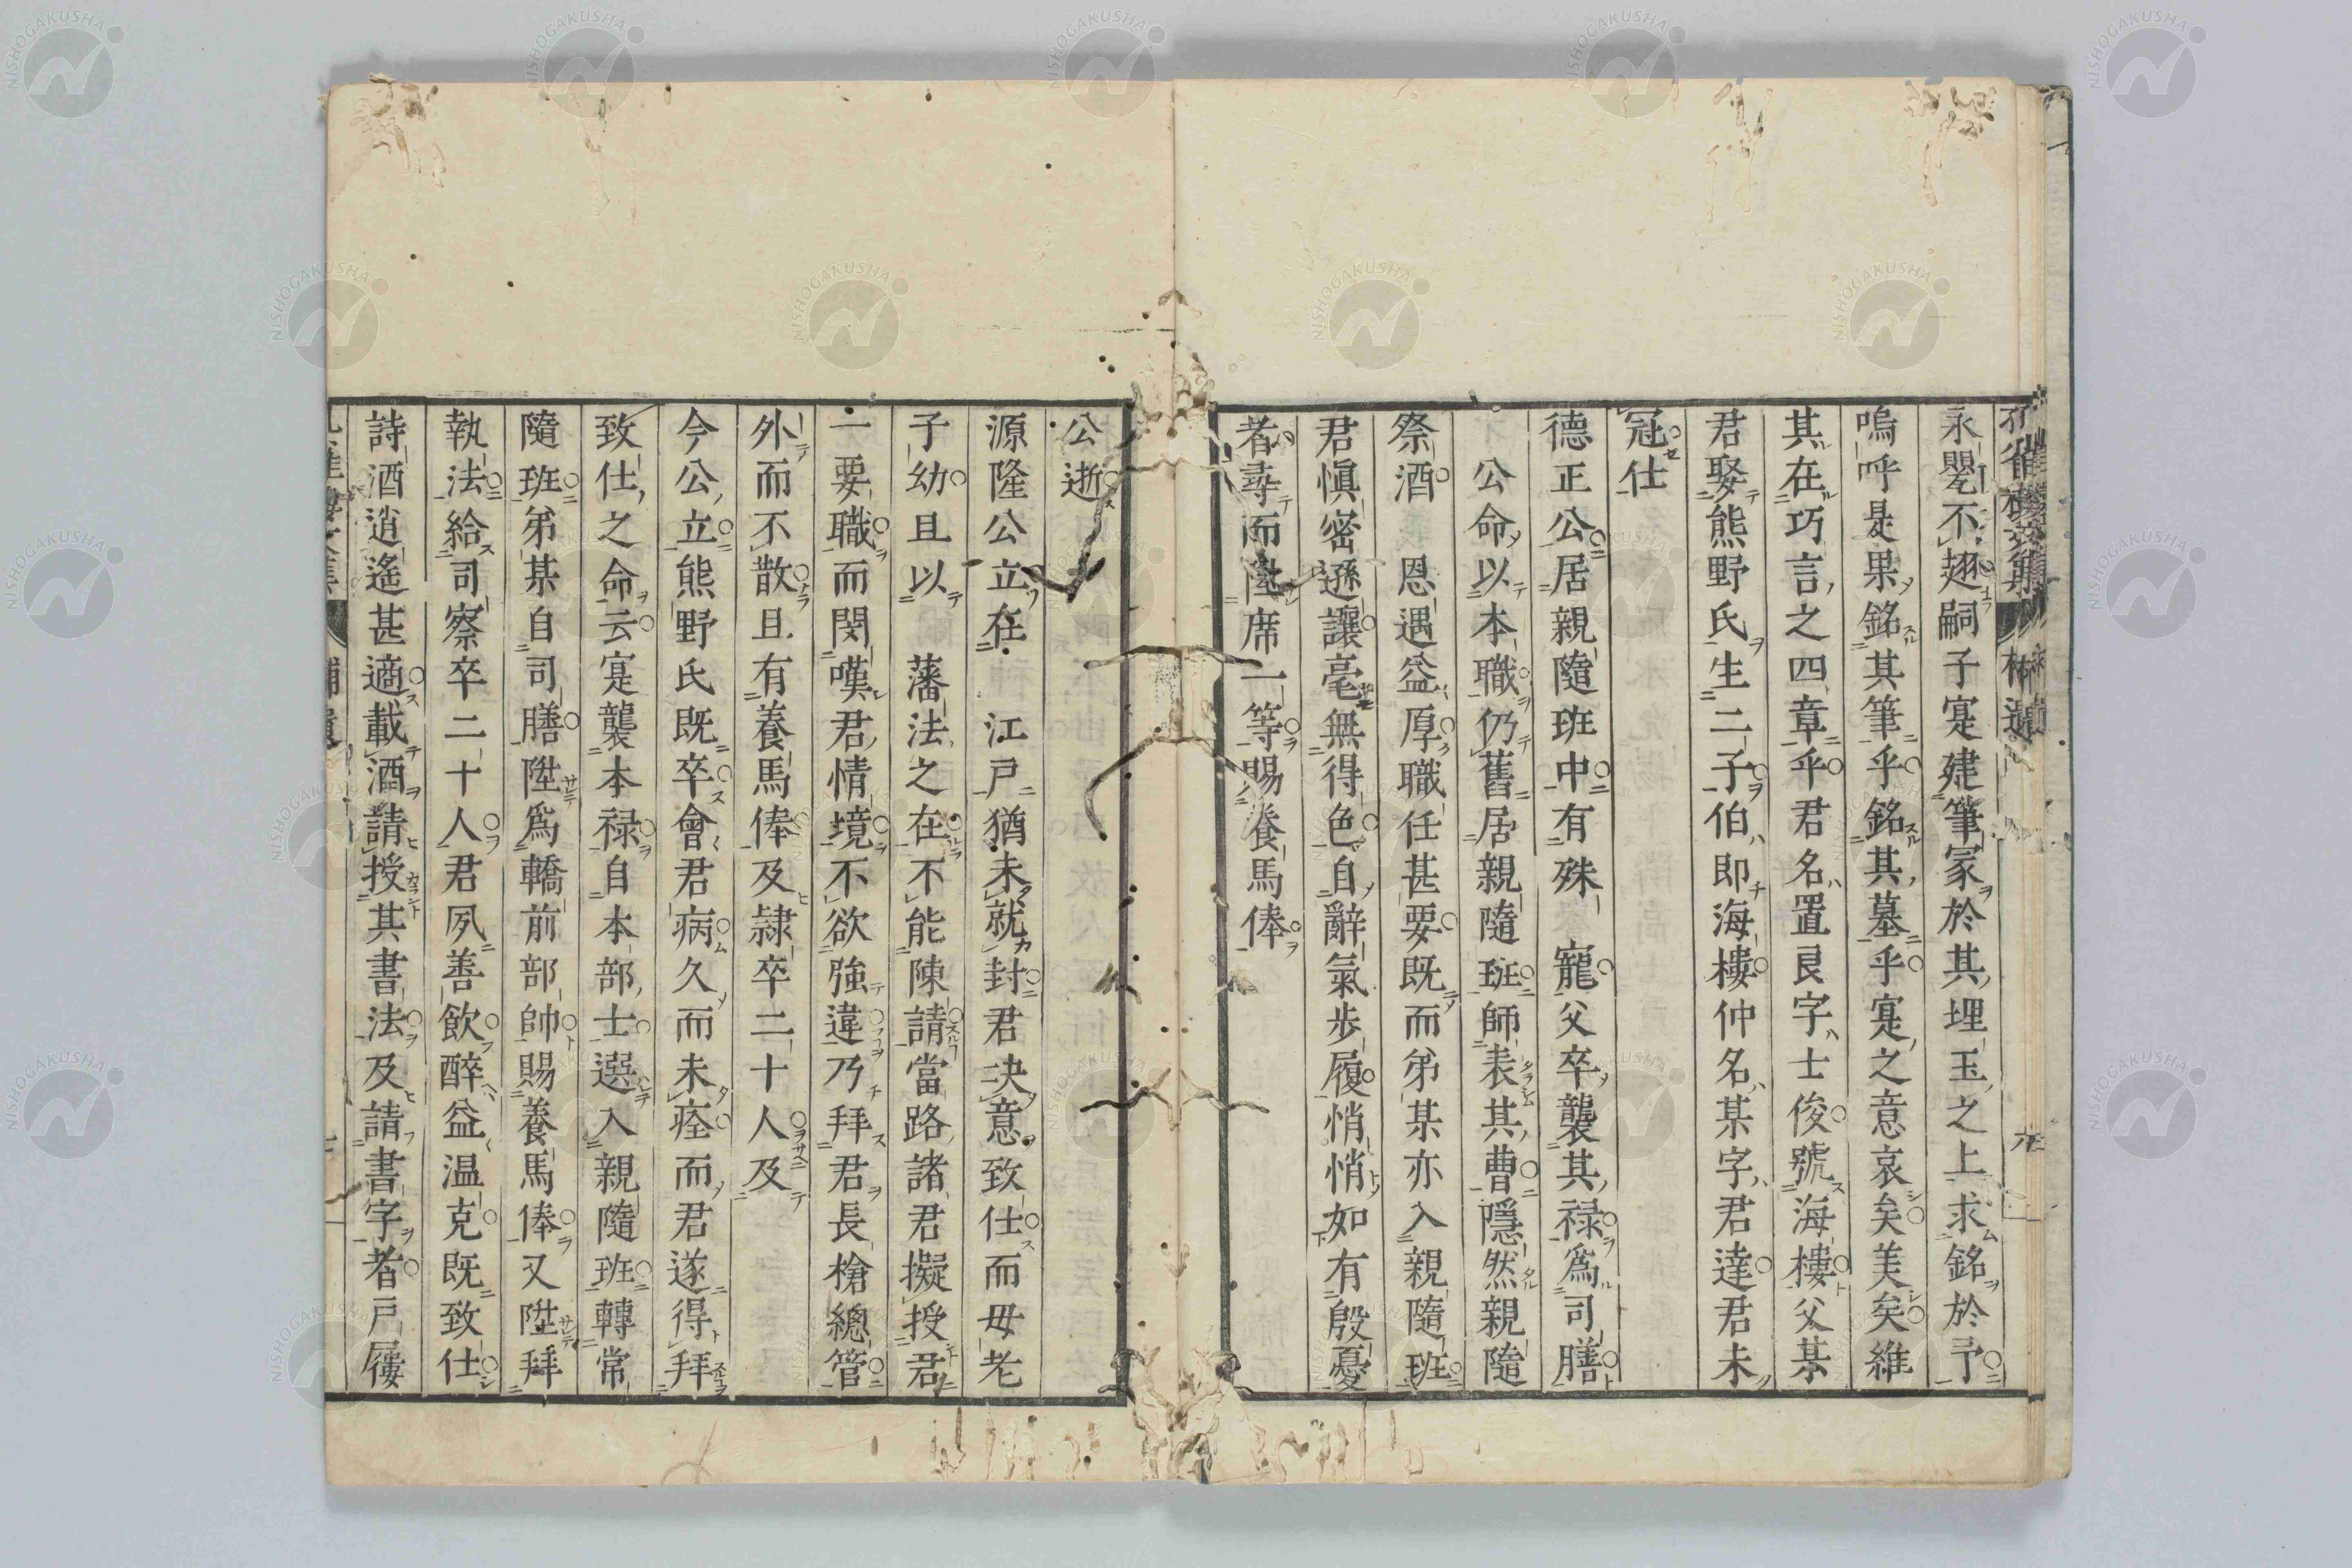 永嬰不趐嗣子寔建筆冢於其埋玉之上求銘於予
嗚呼是果銘其筆乎銘其墓乎寔之意哀矣美矣維
其在巧言之四章乎君名置艮字士俊號海樓父某
君娶熊野氏生二子伯即海樓仲名某字君達君未
冠仕
德正公居親隨班中有殊 寵父卒襲其祿爲司膳
公命以本職仍舊居親隨班師表其曹隱然親隨
祭酒 恩遇益厚職任甚要既而弟某亦入親隨班
君愼密遜讓毫無得色自辭氣步履悄悄如有殷憂
者尋而隆席一等賜養馬俸
公逝
源隆公立在 江戸猶未就封君決意致仕而母老
子幼且以 藩法之在不能陳請當路諸君擬授君
一要職而閔嘆君情境不欲強違乃拜君長槍總管
外而不散且有養馬俸及隷卒二十人及
今公立熊野氏既卒會君病久而未痊而君遂得拜
致仕之命云寔襲本祿自本部士選入親隨班轉常
隨班弟某自司膳陞爲轎前部帥賜養馬俸又陞拜
執法給司察卒二十人君夙善飮醉益温克既致仕
詩酒逍遙甚適載酒請授其書法及請書字者戸屨